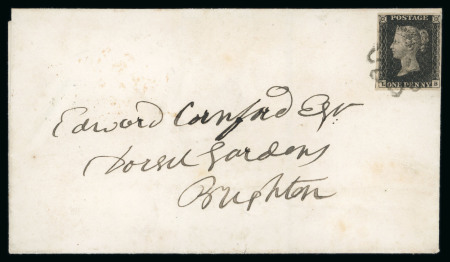 POSTAGE
ONE PENNY
Edward Cornford Esqr
Dorset Gardens
Brighton